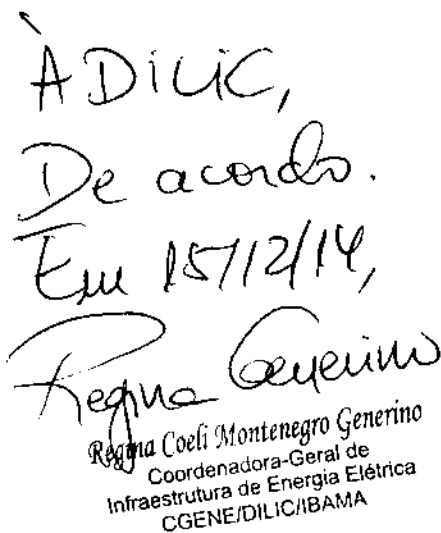 À DILIC,
De acordo.
Em 15/12/14,
Regina Generino
Regina Coeli Montenegro Generino
Coordenadora-Geral de
Infraestrutura de Energia Elétrica
CGENE/DILIC/IBAMA